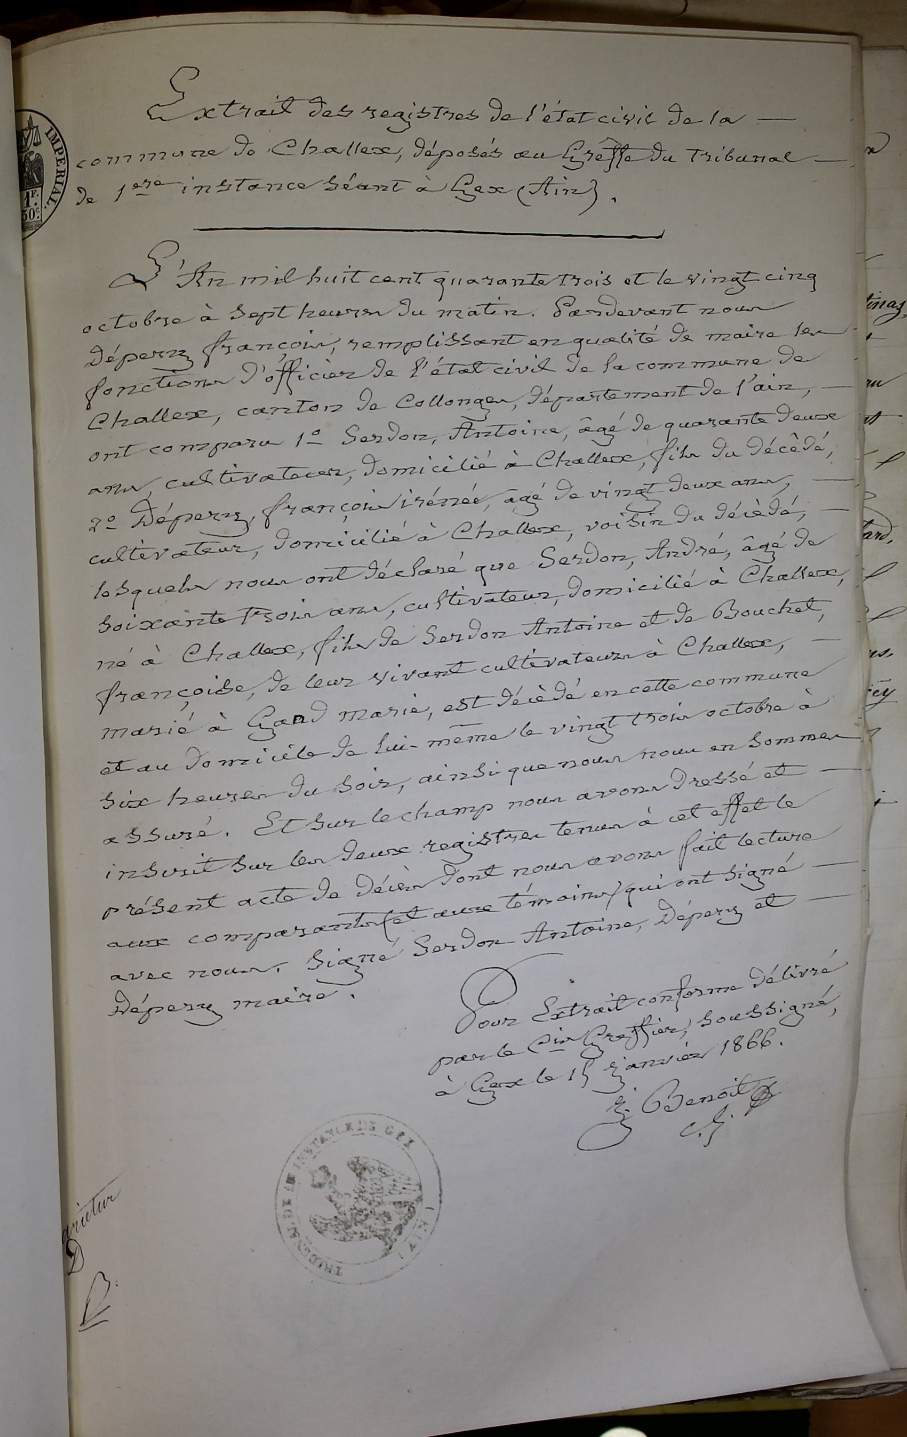 Extrait des registres de l'état civil de la —
commune de Challex, déposés au Greffe du Tribunal —
de 1ere instance séant à Gex (Ain).
IMPERIAL.
1F.
50c.
L'An mil huit cent quarante trois et le vingt cinq
octobre à sept heures du matin. Pardevant nous
Dépery françois, remplissant en qualité de maire les
fonctions d'officier de l'état civil de la commune de
Challex, canton de Collonges, département de l'ain, —
ont comparu 1° Serdon, Antoine, âgé de quarante deux
ans, cultivateur, domicilié à Challex, fils du décèdé,
2° Dépery, françois irénée, âgé de vingt deux ans, —
cultivateur, domicilié à Challex, voisin du décèdé, —
lesquels nous ont déclaré que Serdon, André, âgé de
soixante trois ans, cultivateur, domicilié à Challex,
né à Challex, fils de Serdon Antoine et de Bouchet,
françoise, de leur vivant cultivateurs à Challex, —
marié à Gand marie, est décèdé en cette commune
et au domicile de lui-même le vingt trois octobre à
six heures du soir, ainsi que nous nous en sommes
assuré. Et sur le champ nous avons dressé et —
inscrit sur les deux registres tenus à cet effet le
présent acte de décès dont nous avons fait lecture
aux comparants et aux témoins qui ont signé —
avec nous. Signé Serdon Antoine, Dépery et —
Dépery maire.
Pour Extrait conforme délivré
par le Cis Greffier, soussigné,
à Gex le 15 janvier 1866.
J. Benoit
c. g.
TRIBUNAL DE 1RE INSTANCE DE GEX
(AIN)